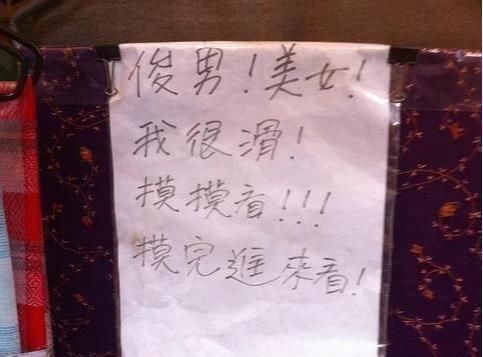 俊男！美女！
我很滑！
摸摸看！！！
摸完進來看！